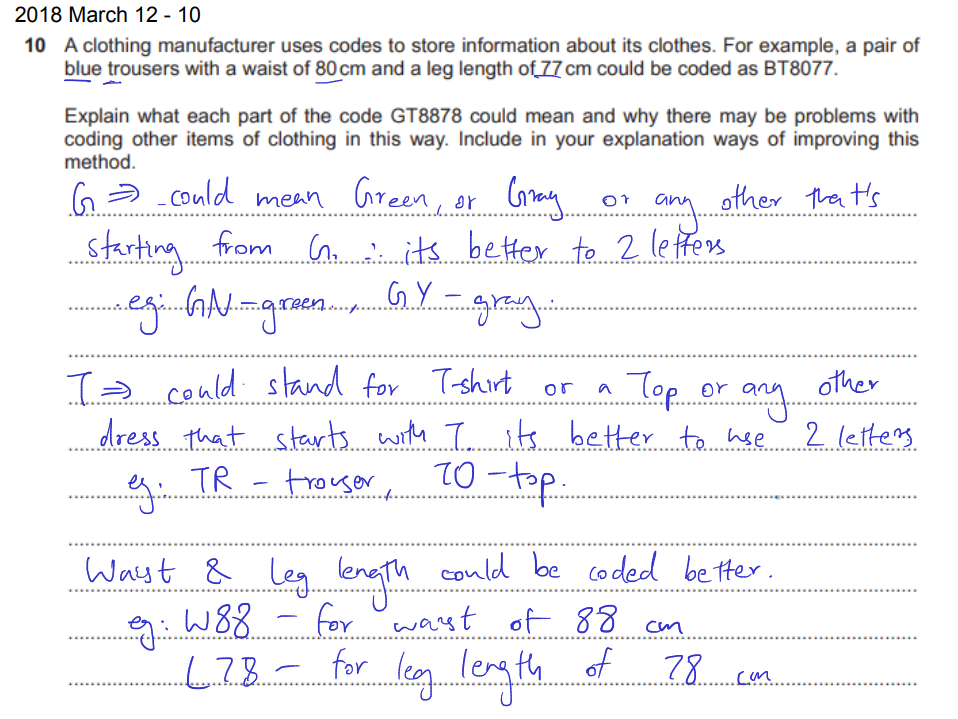 2018 March 12 - 10
10 A clothing manufacturer uses codes to store information about its clothes. For example, a pair of
blue trousers with a waist of 80 cm and a leg length of 77 cm could be coded as BT8077.
Explain what each part of the code GT8878 could mean and why there may be problems with
coding other items of clothing in this way. Include in your explanation ways of improving this
method.
G ⇒ could mean Green, or Gray or any other that's
starting from G. ∴ its better to 2 letters
eg: GN - green, GY - gray.
T ⇒ could stand for T-shirt or a Top or any other
dress that starts with T. its better to use 2 letters
eg: TR - trouser, TO - top.
Waist & Leg length could be coded better.
eg: W88 - for waist of 88 cm
L78 - for leg length of 78 cm